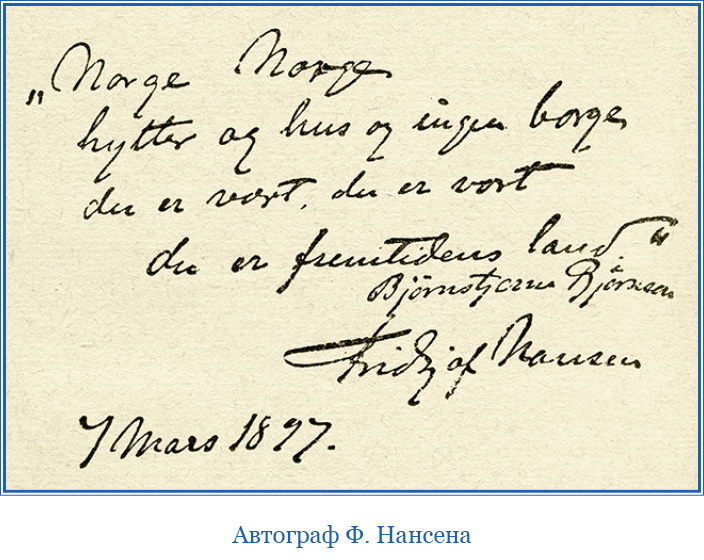 „Norge Norge
hytter og hus og ingen borge,
du er vort, du er vort
du er fremtidens land.“
Björnstjerne Björnson
Fridtjof Nansen
7 Mars 1897.
Автограф Ф. Нансена